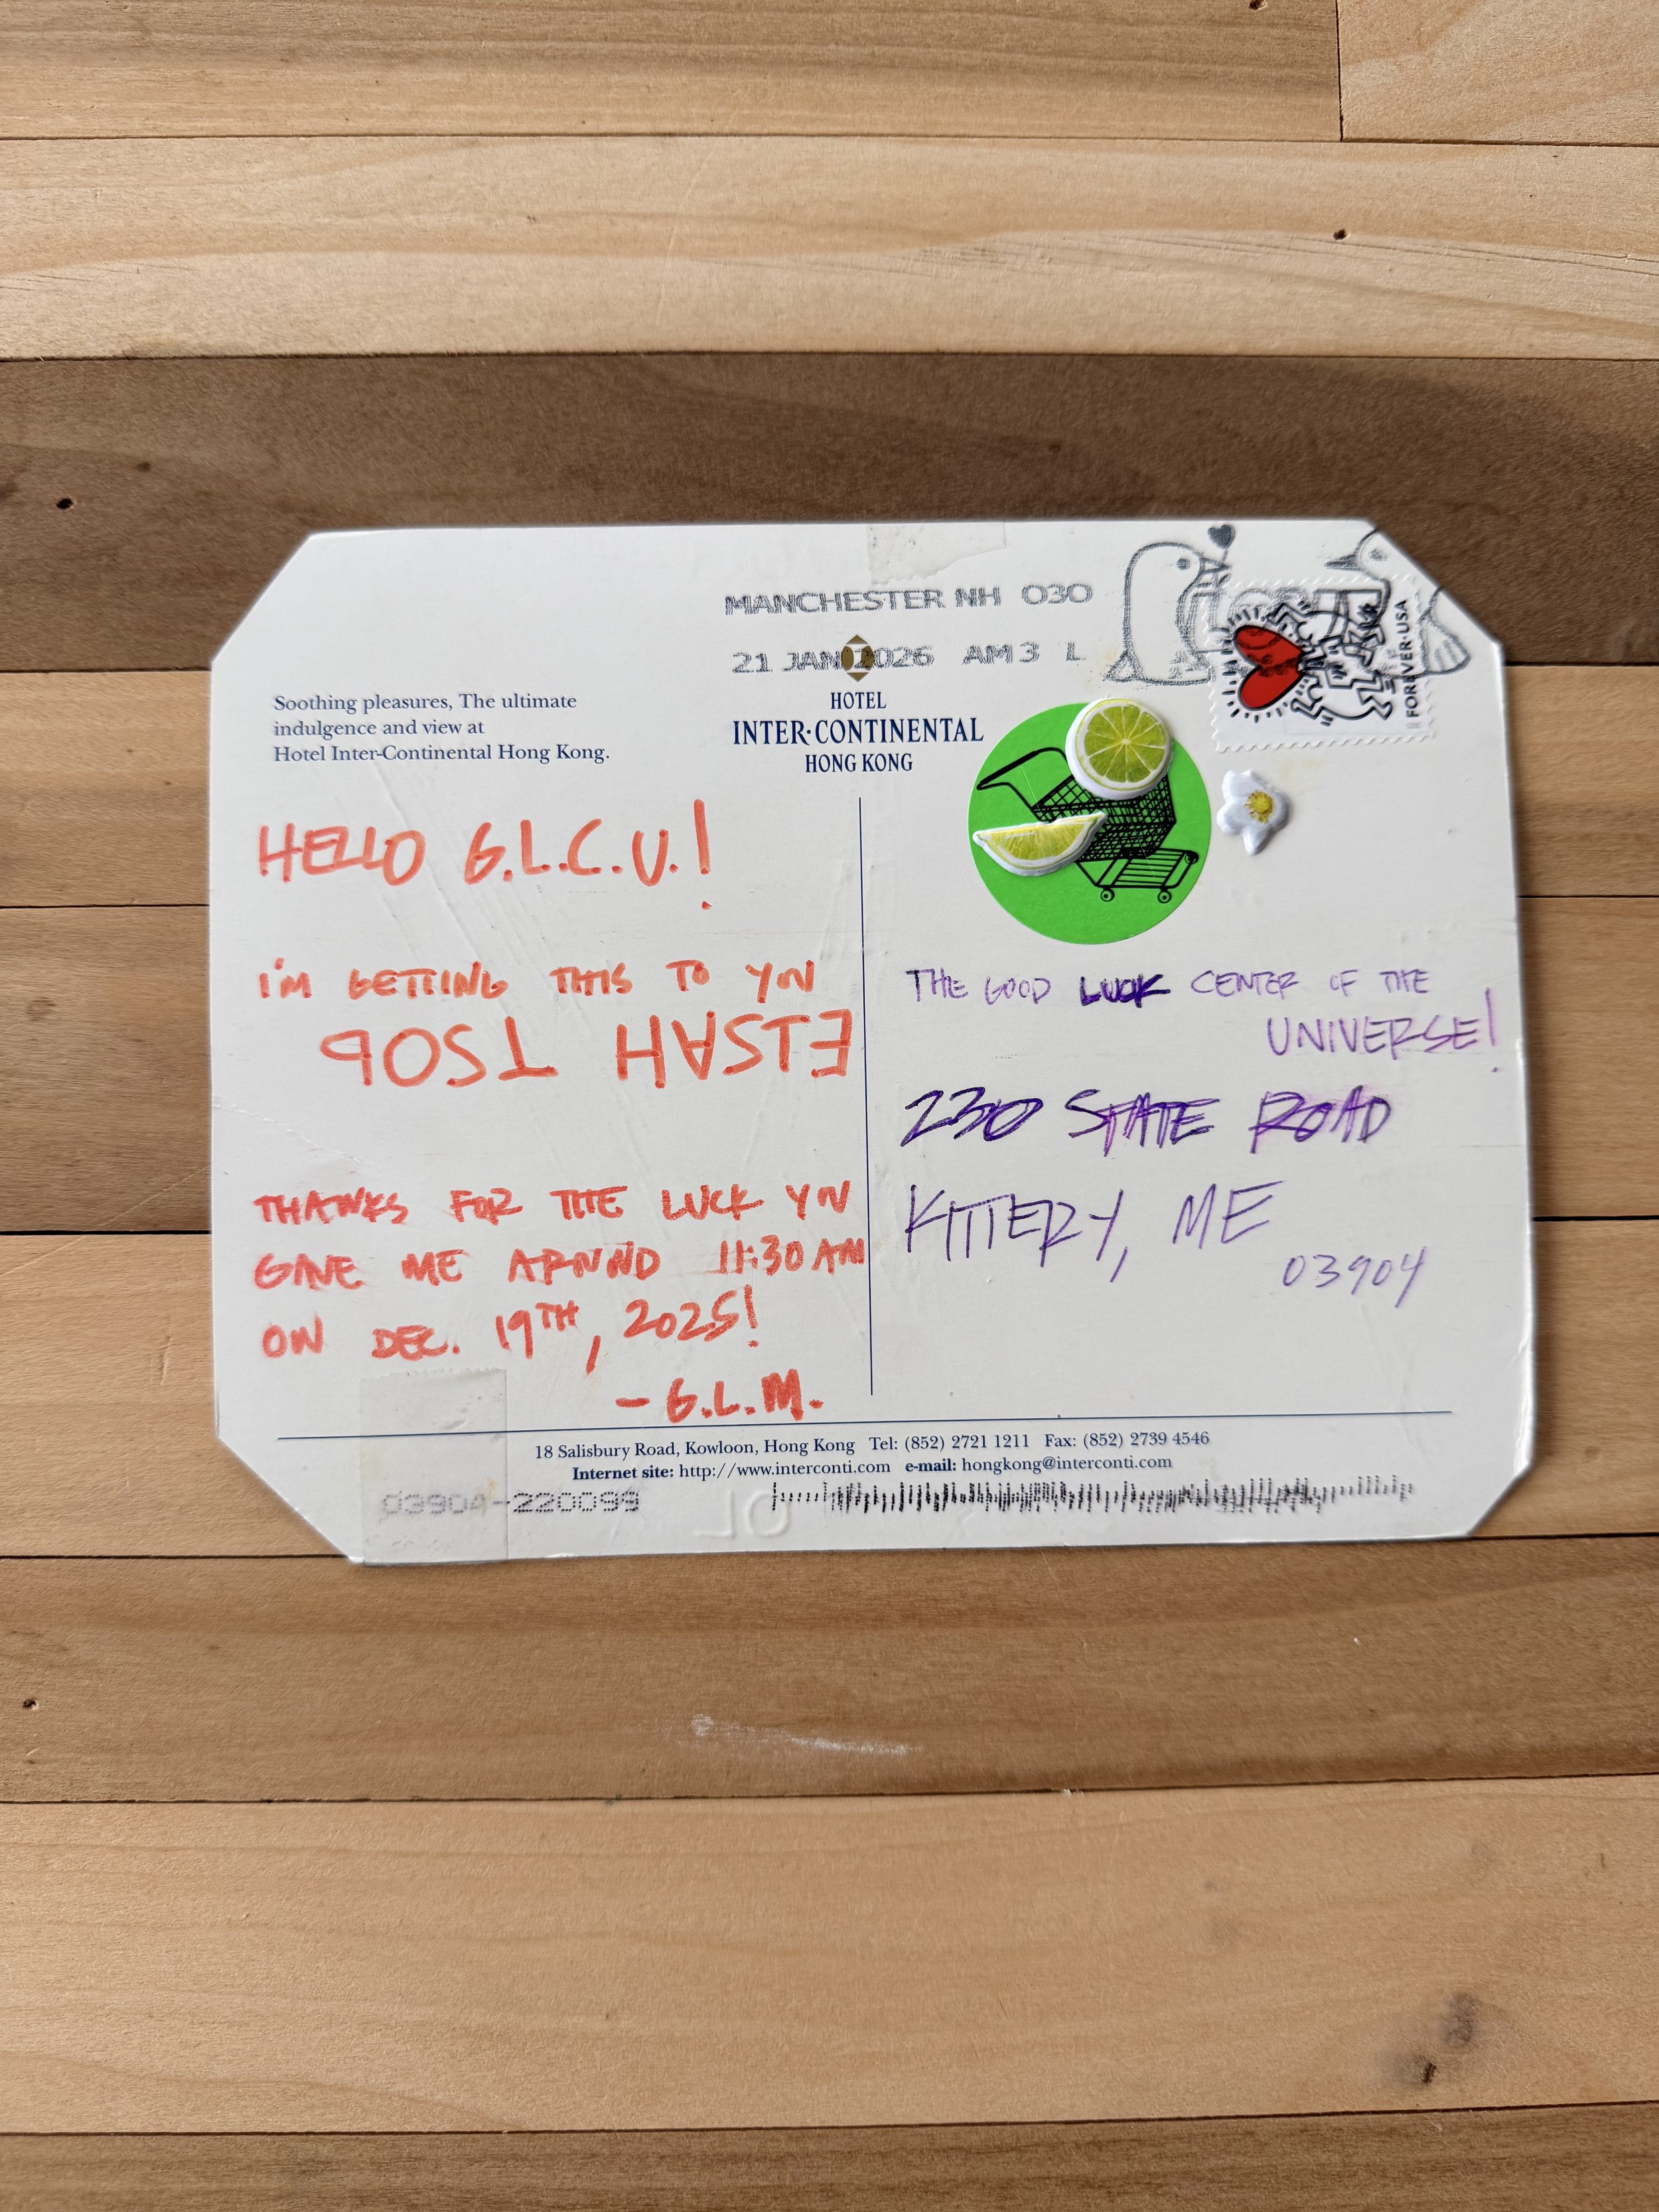 MANCHESTER NH 030
21 JAN 2026 AM 3 L
FOREVER·USA
Soothing pleasures, The ultimate
indulgence and view at
Hotel Inter-Continental Hong Kong.
HOTEL
INTER·CONTINENTAL
HONG KONG
HELLO G.L.C.U.!
I'M GETTING THIS TO YOU
POST HASTE
THANKS FOR THE LUCK YOU
GAVE ME AROUND 11:30 AM
ON DEC. 19TH, 2025!
- G.L.M.
THE GOOD LUCK CENTER OF THE
UNIVERSE!
230 STATE ROAD
KITTERY, ME
03904
18 Salisbury Road, Kowloon, Hong Kong Tel: (852) 2721 1211 Fax: (852) 2739 4546
Internet site: http://www.interconti.com e-mail: hongkong@interconti.com
03904-220099